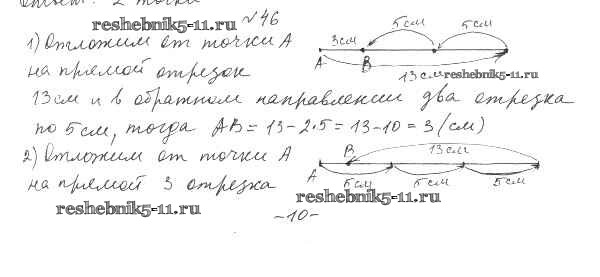 Ответ: 2 точки
reshebnik5-11.ru №46
1) Отложим от точки А
на прямой отрезок
3см 5см 5см
A B
13см reshebnik5-11.ru
13см и в обратном направлении два отрезка
по 5см, тогда AB = 13 - 2·5 = 13 - 10 = 3 (см)
2) Отложим от точки А
на прямой 3 отрезка
B 13см
A 5см 5см 5см
reshebnik5-11.ru reshebnik5-11.ru
-10-